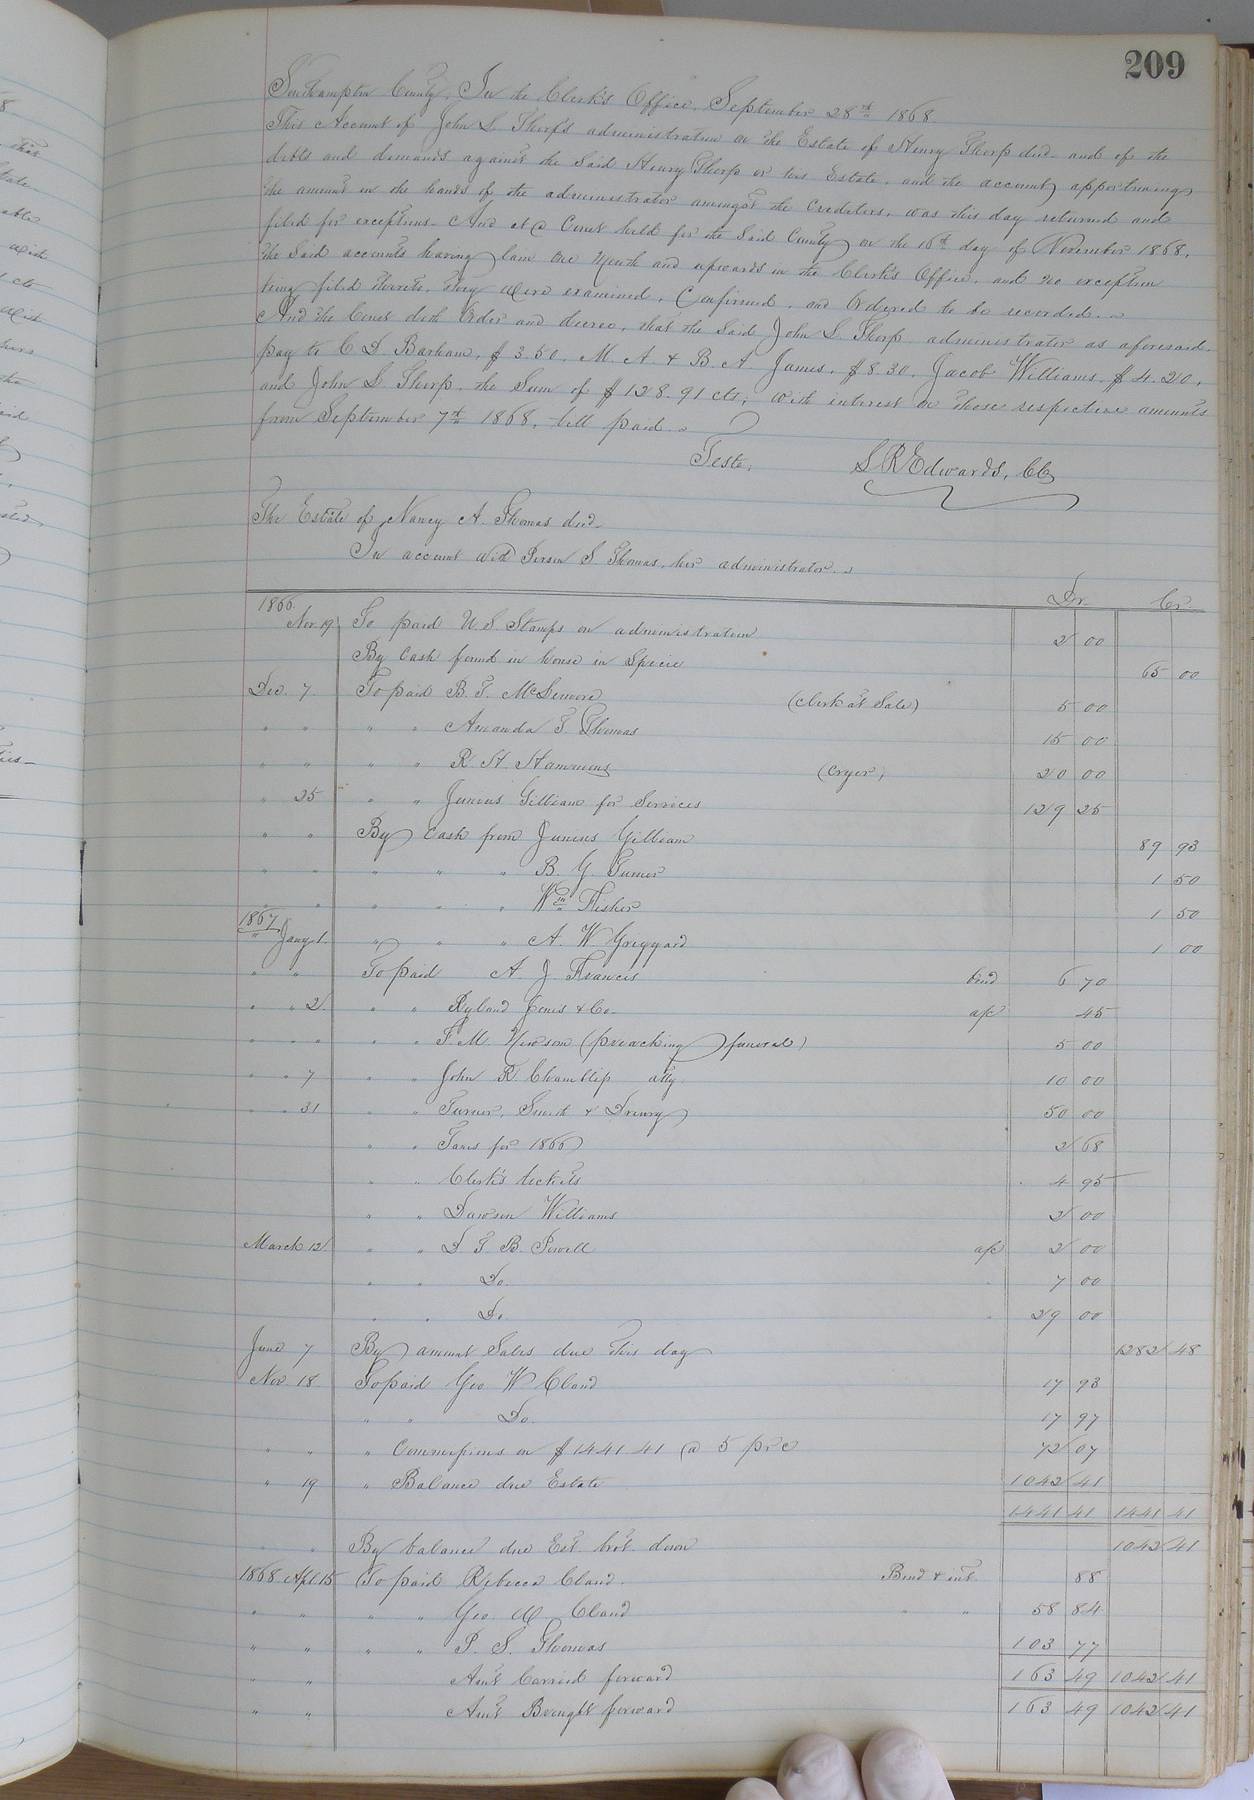 209
Southampton County, In the Clerk's Office, September 28th 1868
This Account of John S. Thorp's administration on the Estate of Henry Thorp decd. and of the
debts and demands against the said Henry Thorp or his Estate, and the account apportioning
the amount in the hands of the administrator amongst the creditors, was this day returned and
filed for exceptions. And at a Court held for the said County on the 16th day of November 1868,
the said accounts having lain one month and upwards in the Clerk's Office, and no exception
being filed thereto, they were examined, Confirmed, and Ordered to be recorded.
And the Court doth Order and decree, that the said John S. Thorp administrator as aforesaid,
pay to C D. Barham, $3.50. M. A. & B. A. James, $8.30, Jacob Williams $4.20,
and John S Thorp, the Sum of $128.91 cts; with interest on those respective amounts
from September 7th 1868, till paid.
Teste, S. R Edwards, CC
The Estate of Nancy A. Thomas decd.
In account with S. Thomas, her administrator.
Dr. Cr.
1866
Nov. 19 To paid U. S. Stamps on administration 2 00
By Cash found in house in Specie 65 00
Dec. 7 To paid B. F. McLemore (Clerk at Sale) 5 00
" " " " Amanda F. Thomas 15 00
" " " " R. H. Hammons (Cryer) 20 00
" 25 " " Junius Gilliam for Services 129 25
" " By Cash from Junius Gilliam 89 93
" " " " " B. G. Turner 1 50
" " " " " Wm Fisher 1 50
1867
" Jany. 1. " " " A. W. Griggard 1 00
" " To paid A. J. Francis bond 6 70
" " 2 " " Ryland Jones & Co. a/c 45
" " " " " F. M. Newsom (preaching funeral) 5 00
" " 7 " " John R. Chambliss atty. 10 00
" " 31 " Turner, Smith & Drewry 50 00
" " Taxes for 1866 2 68
" " Clerk's tickets 4 95
" " Dawson Williams 2 00
March 12 " " D. F. B. Powell a/c 2 00
" " Do. " 7 00
" " Do. " 29 00
June 7 By amount Sales due this day 1282 48
Nov. 18 To paid Geo W Claud 17 93
" " Do. 17 97
" " " Commissions on $1441 41 @ 5 pr c 72 07
" 19 " Balance due Estate 1042 41
1441 41 1441 41
" " By balance due Est. brot. down 1042 41
1868 Apl. 15 To paid Rebecca Claud. Bond & int. 88
" " " " Geo. W. Claud " " 58 84
" " " " P. S. Thomas 103 77
" " Amt. Carried forward 163 49 1042 41
" " Amt. Brought forward 163 49 1042 41